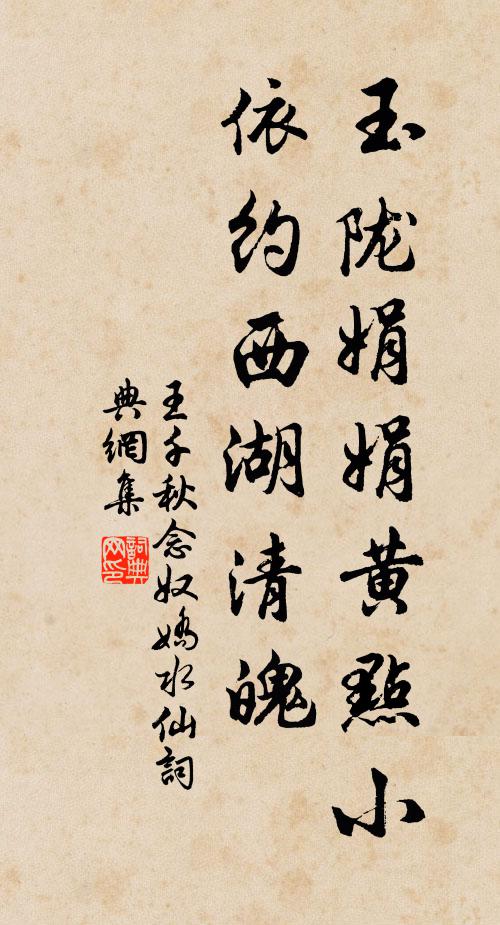 玉陇娟娟黄點小
依约西湖清魄
王千秋念奴嬌水仙詞
典網集
詞典网印